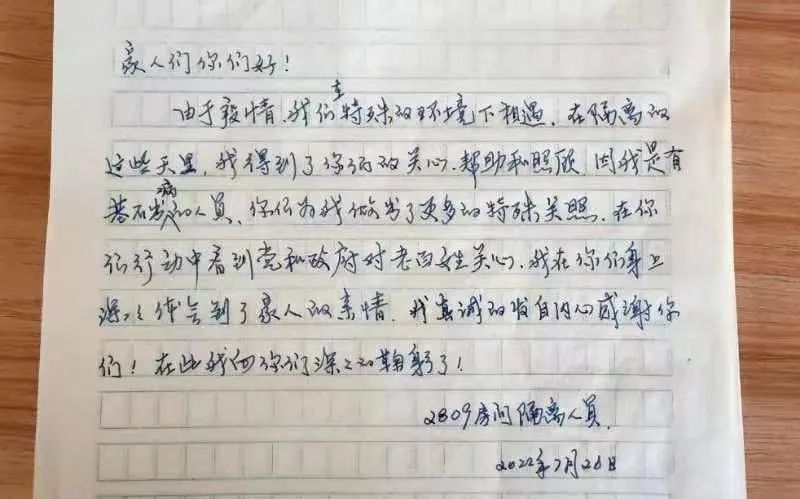 亲人们你们好！
由于疫情，我们在特殊的环境下相遇，在隔离的
这些天里，我得到了你们的关心、帮助和照顾，因我是有
基石发病的人员，你们为我做出了更多的特殊关照，在你
们行动中看到党和政府对老百姓关心，我在你们身上
深深体会到了亲人的亲情，我真诚的发自内心感谢你
们！在此我向你们深深的鞠躬了！
2809房间隔离人员
2022年7月26日